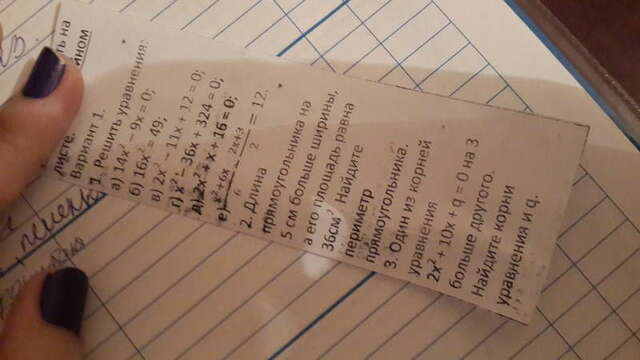 ть на
ином
листе.
Вариант 1.
1. Решить уравнения:
а) 14x² – 9x = 0;
б) 16x² = 49;
в) 2x² – 11x + 12 = 0;
г) x² – 36x + 324 = 0;
д) 2x² + x + 16 = 0;
е) x²+6x/6 – 2x+3/2 = 12.
2. Длина
прямоугольника на
5 см больше ширины,
а его площадь равна
36см². Найдите
периметр
прямоугольника.
3. Один из корней
уравнения
2x² + 10x + q = 0 на 3
больше другого.
Найдите корни
уравнения и q.